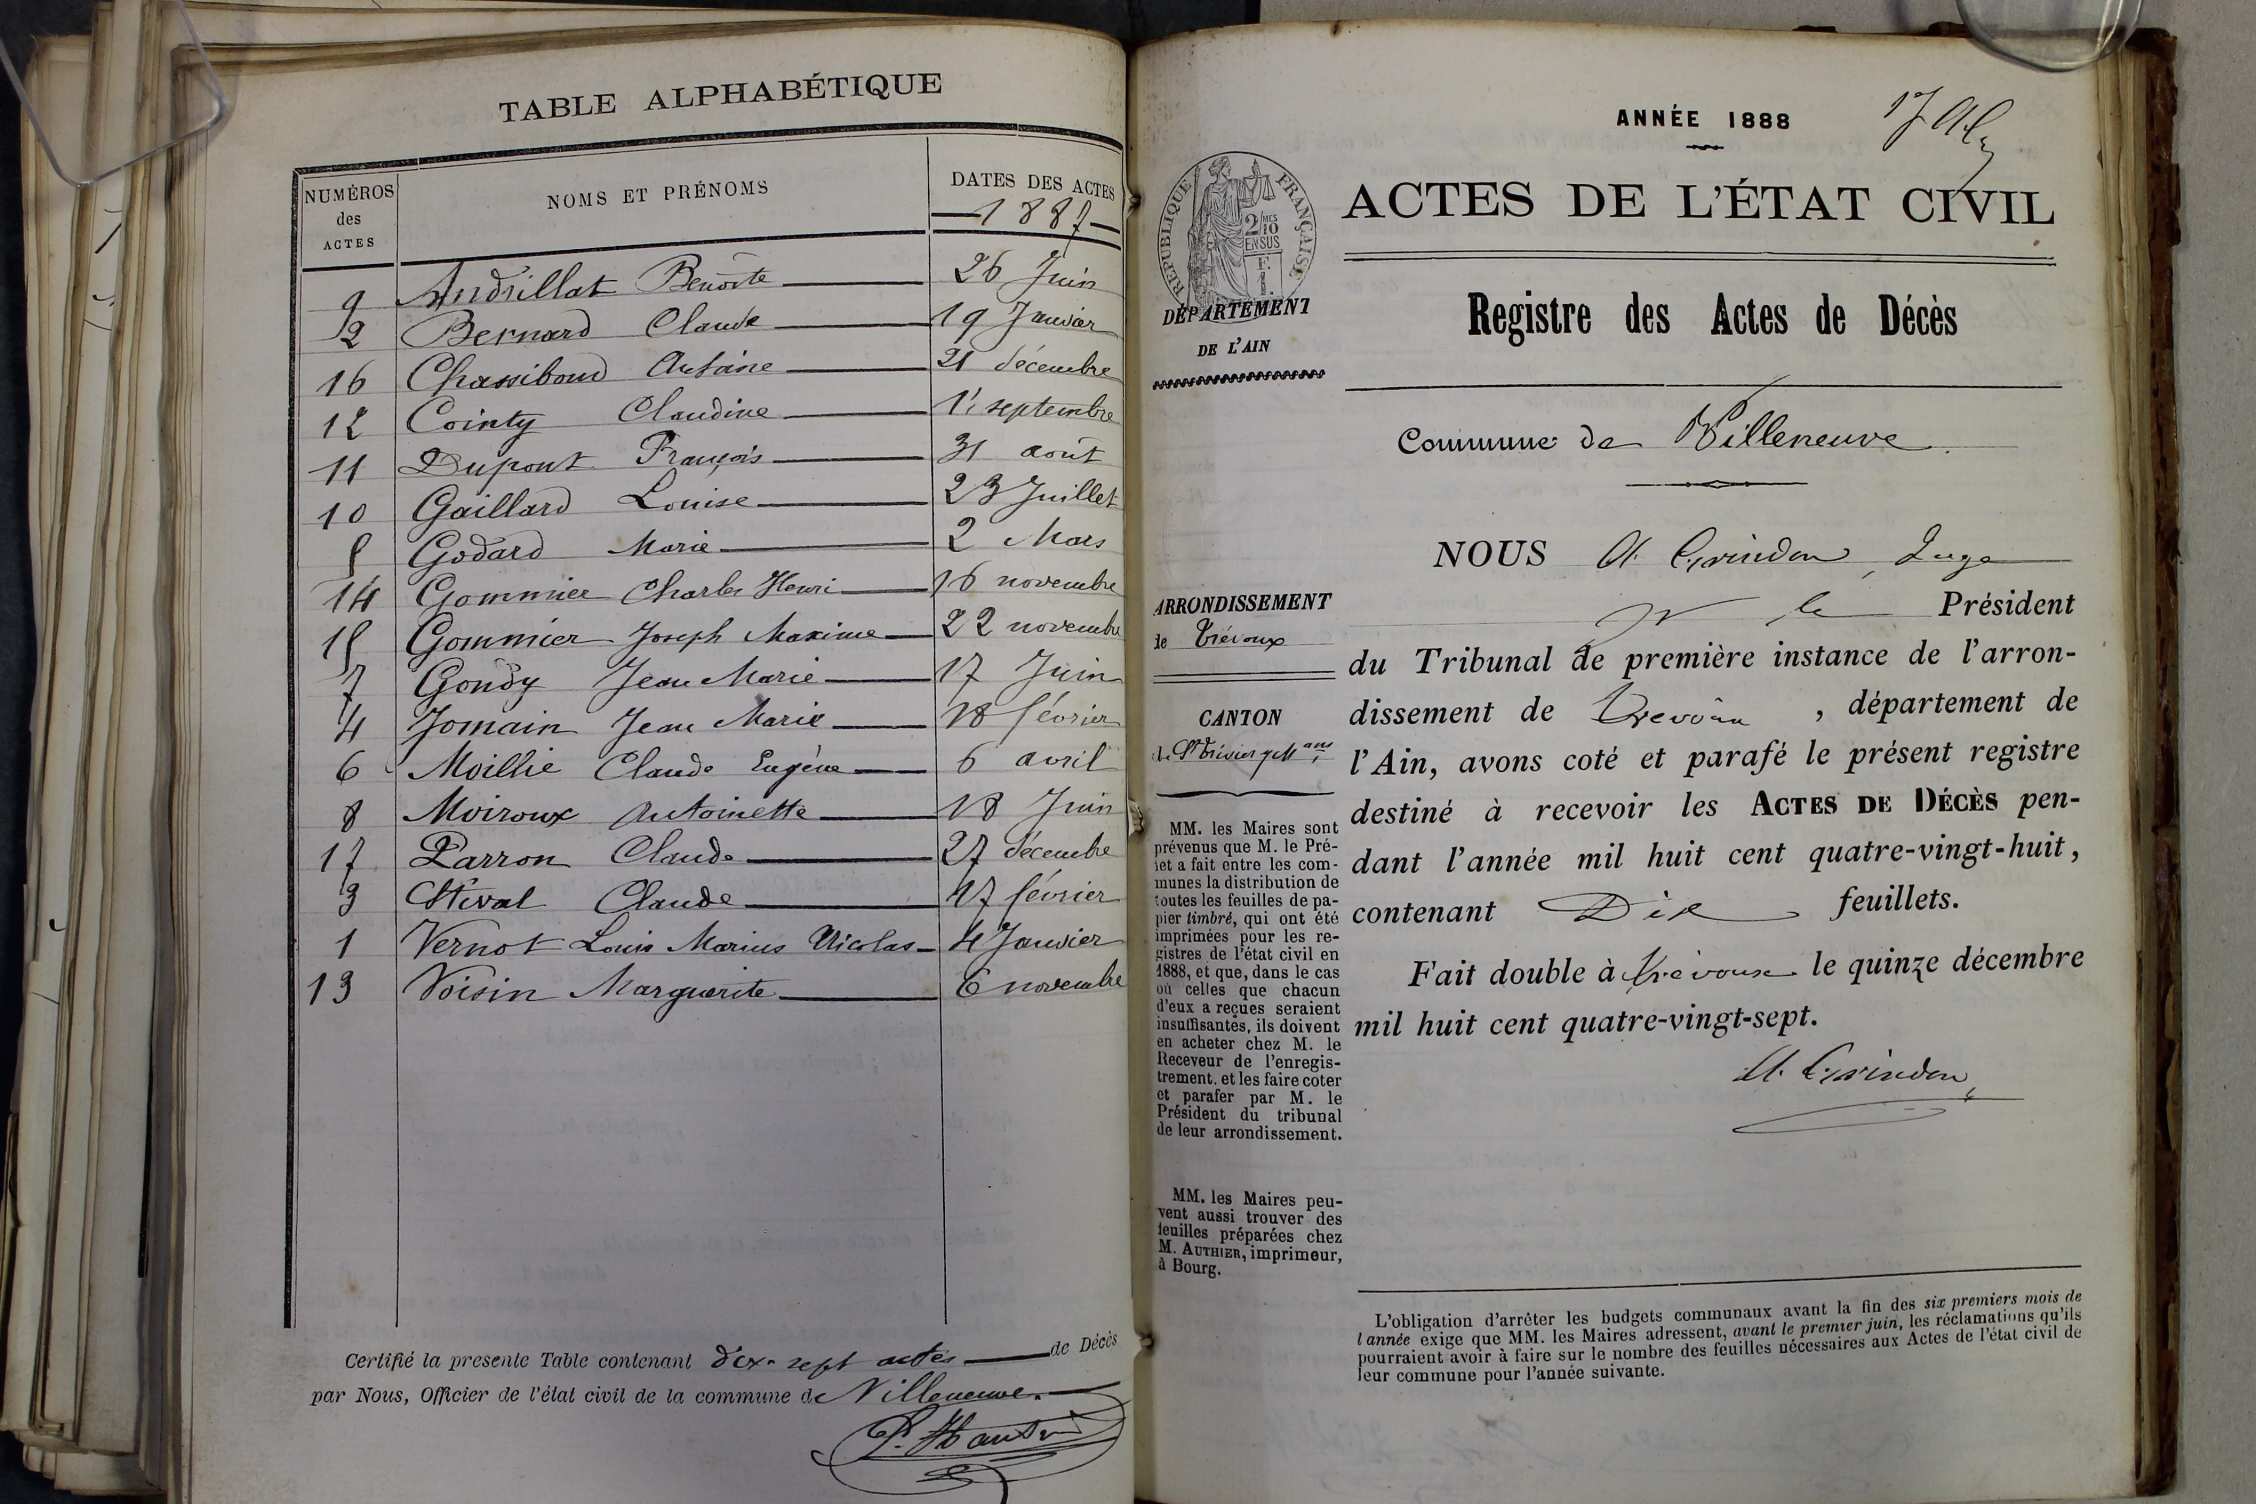 TABLE ALPHABÉTIQUE
NUMÉROS des ACTES
NOMS ET PRÉNOMS
DATES DES ACTES
1887
9 Andrillat Benoîte 26 Juin
2 Bernard Claude 19 Janvier
16 Chassiboud Antoine 21 décembre
12 Cointy Claudine 1er septembre
11 Dupont François 31 août
10 Gaillard Louise 23 Juillet
5 Godard Marie 2 Mars
14 Gommier Charles Henri 16 novembre
15 Gommier Joseph Maxime 22 novembre
7 Gondy Jean Marie 17 Juin
4 Jomain Jean Marie 18 février
6 Moillie Claude Eugène 6 avril
8 Moiroux Antoinette 18 Juin
17 Parron Claude 27 décembre
3 Stival Claude 17 février
1 Vernot Louis Marius Nicolas 4 Janvier
13 Voisin Marguerite 6 novembre
Certifié la presente Table contenant dix-sept actes de Décès
par Nous, Officier de l'état civil de la commune de Villeneuve.
ANNÉE 1888
RÉPUBLIQUE FRANÇAISE
2/10
EN SUS
F.
1.
DÉPARTEMENT
DE L'AIN
ACTES DE L'ÉTAT CIVIL
Registre des Actes de Décès
Commune de Villeneuve
ARRONDISSEMENT
de Trévoux
CANTON
de St Trivier
MM. les Maires sont
prévenus que M. le Pré-
fet a fait entre les com-
munes la distribution de
toutes les feuilles de pa-
pier timbré, qui ont été
imprimées pour les re-
gistres de l'état civil en
1888, et que, dans le cas
où celles que chacun
d'eux a reçues seraient
insuffisantes, ils doivent
en acheter chez M. le
Receveur de l'enregis-
trement, et les faire coter
et parafer par M. le
Président du tribunal
de leur arrondissement.
MM. les Maires peu-
vent aussi trouver des
feuilles préparées chez
M. AUTHIER, imprimeur,
à Bourg.
NOUS A. Grindon, Juge
le Président
du Tribunal de première instance de l'arron-
dissement de Trévoux, département de
l'Ain, avons coté et parafé le présent registre
destiné à recevoir les ACTES DE DÉCÈS pen-
dant l'année mil huit cent quatre-vingt-huit,
contenant Dix feuillets.
Fait double à Trévoux le quinze décembre
mil huit cent quatre-vingt-sept.
A. Grindon
L'obligation d'arrêter les budgets communaux avant la fin des six premiers mois de
l'année exige que MM. les Maires adressent, avant le premier juin, les réclamations qu'ils
pourraient avoir à faire sur le nombre des feuilles nécessaires aux Actes de l'état civil de
leur commune pour l'année suivante.